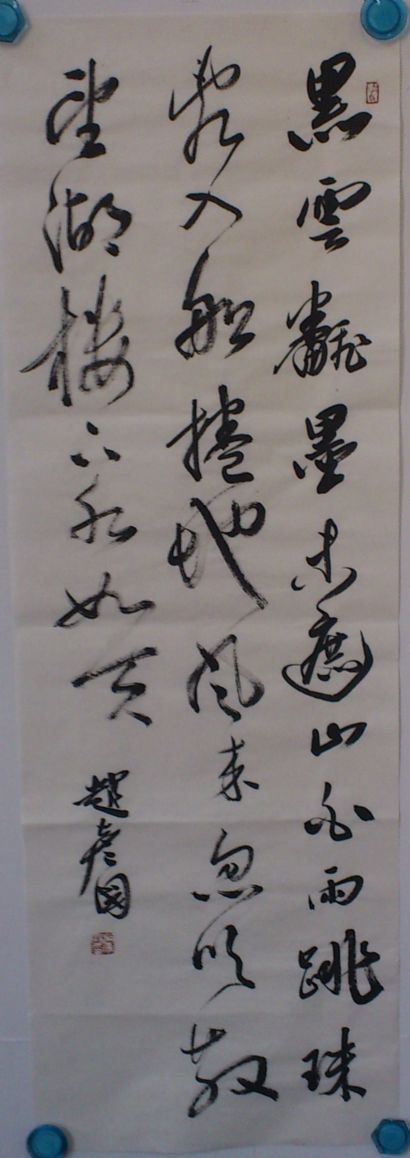 黑雲飜墨未遮山白雨跳珠
亂入船捲地風來忽吹散
望湖樓下水如天
趙彥國